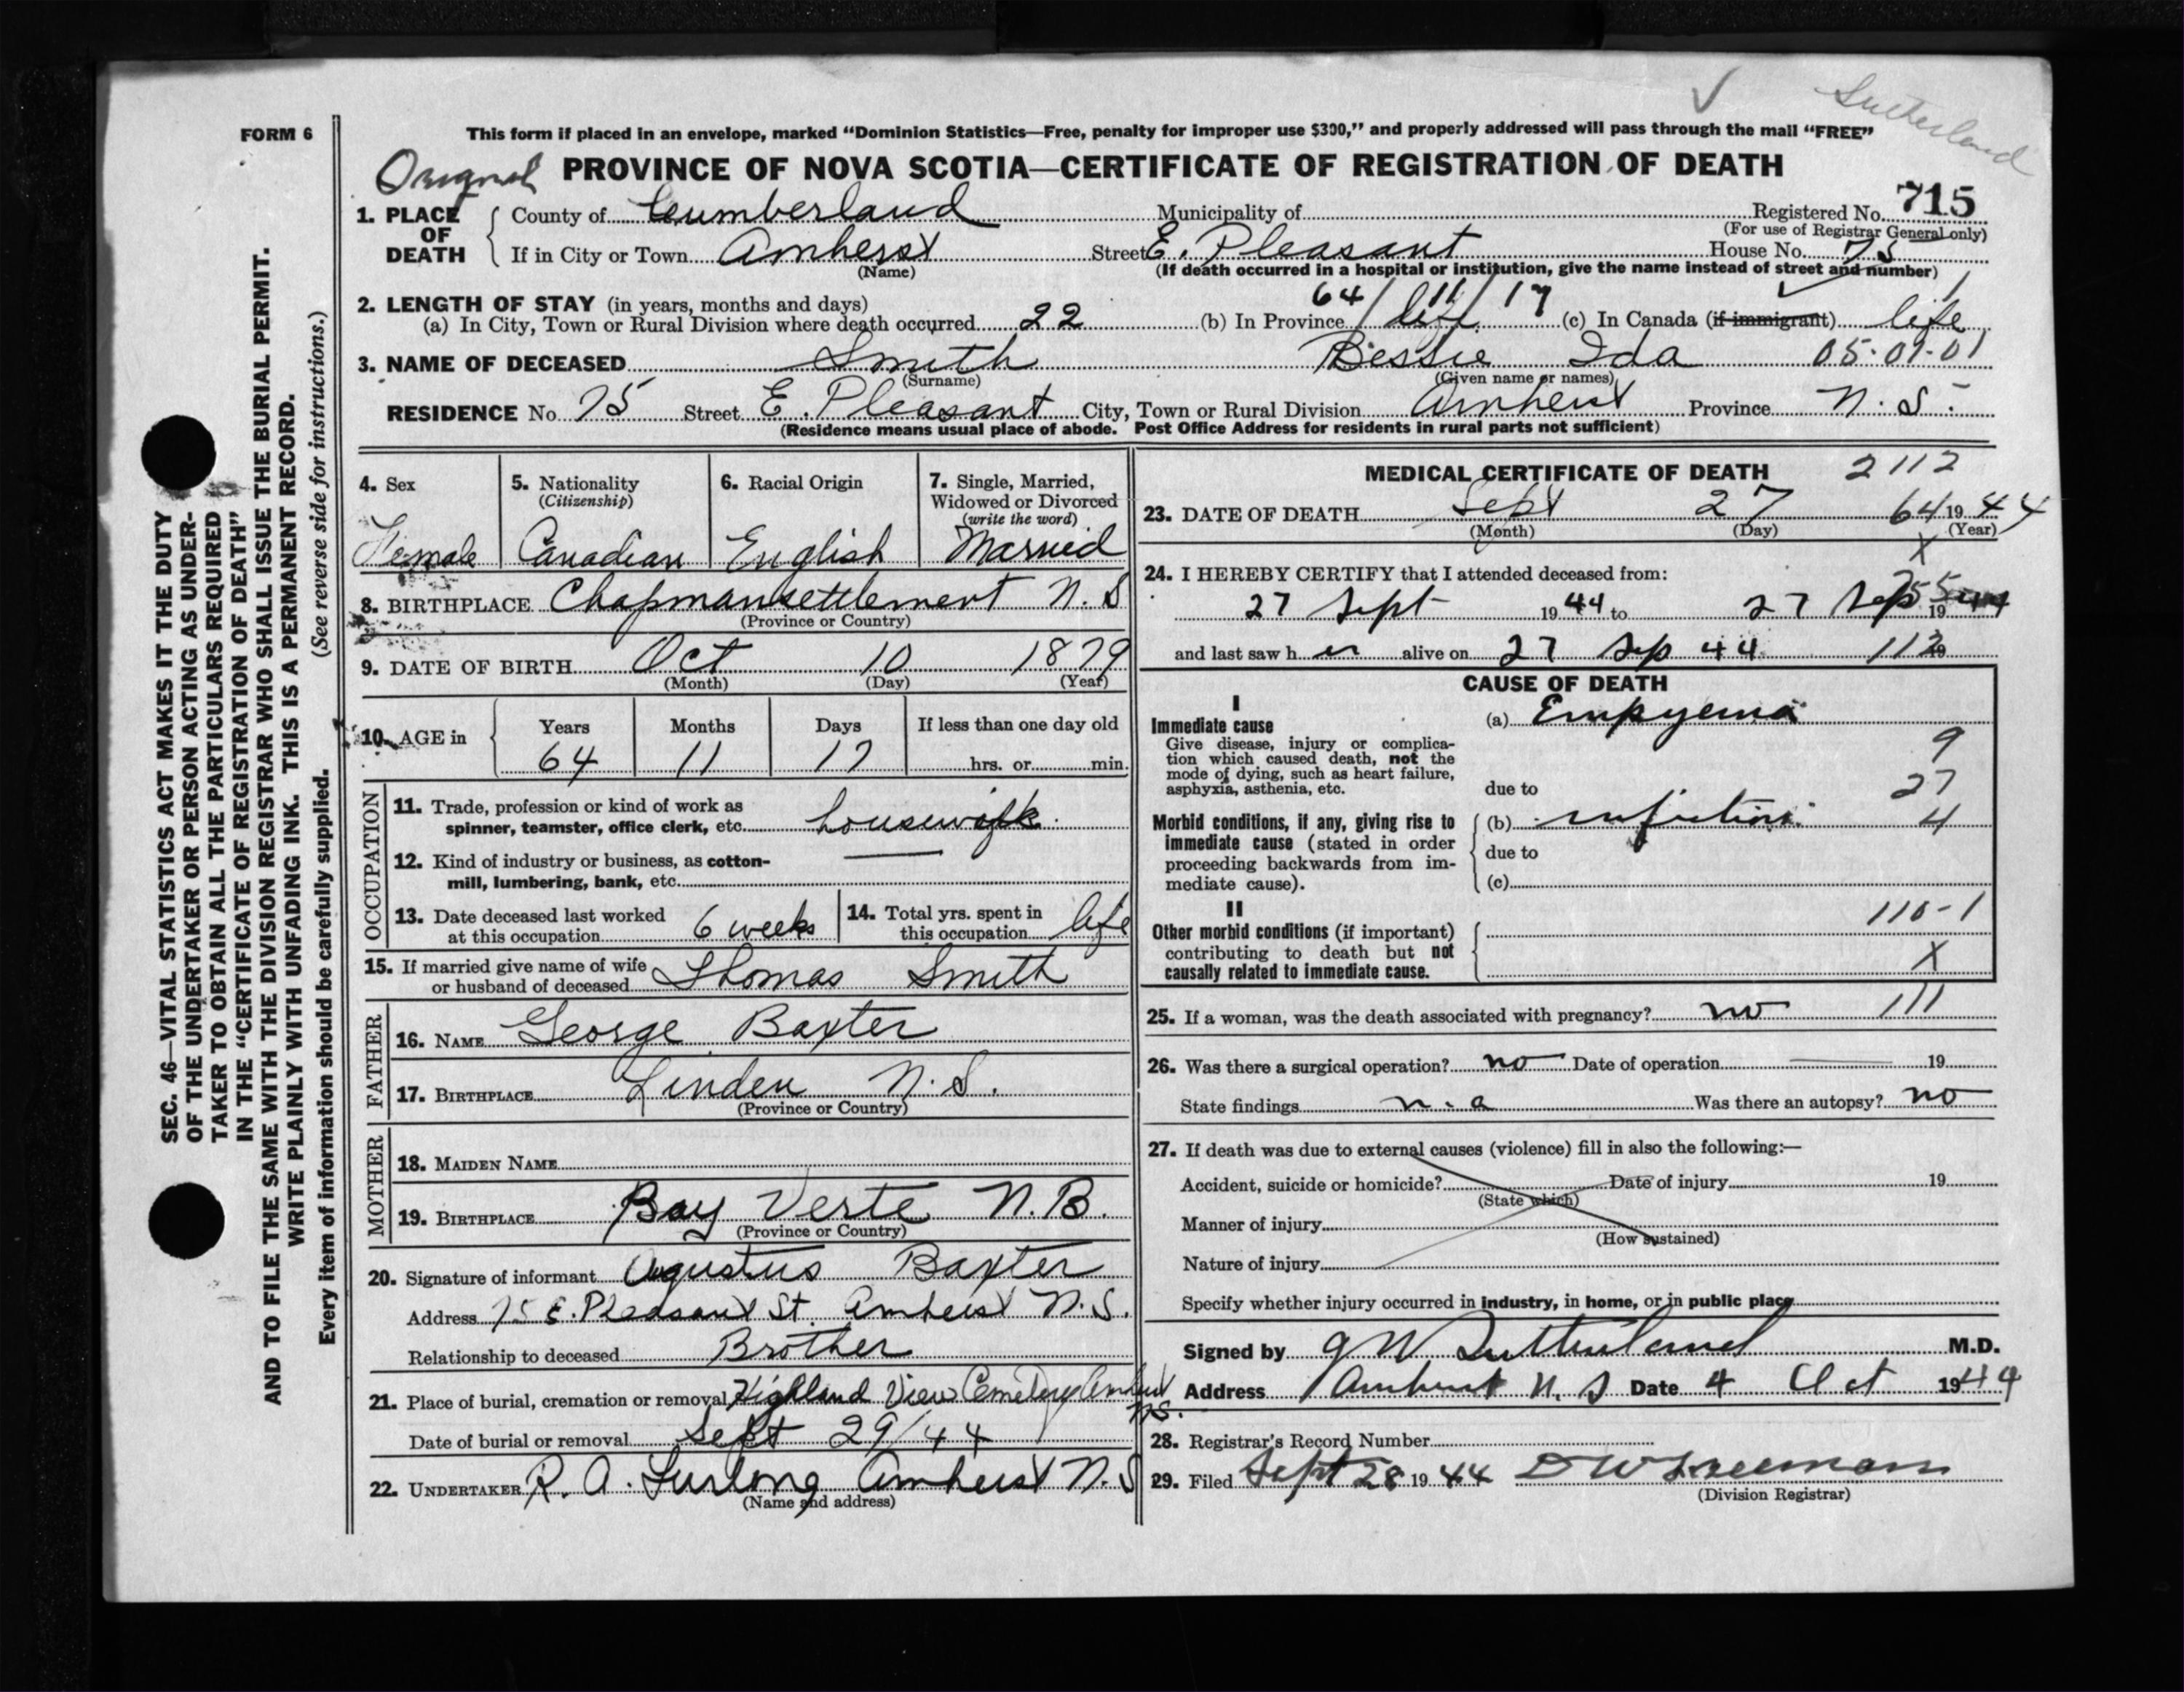 Sutherland
FORM 6
This form if placed in an envelope, marked "Dominion Statistics—Free, penalty for improper use $300," and properly addressed will pass through the mail "FREE"
Original PROVINCE OF NOVA SCOTIA—CERTIFICATE OF REGISTRATION OF DEATH
1. PLACE OF DEATH County of Cumberland Municipality of Registered No. 715
(For use of Registrar General only)
If in City or Town Amherst Street E. Pleasant House No. 75
(Name) (If death occurred in a hospital or institution, give the name instead of street and number)
2. LENGTH OF STAY (in years, months and days) 64/11/17 1
(a) In City, Town or Rural Division where death occurred 22 (b) In Province life (c) In Canada (if immigrant) life
3. NAME OF DECEASED Smith Bessie Ida 05-01-01
(Surname) (Given name or names)
RESIDENCE No. 75 Street E. Pleasant City, Town or Rural Division Amherst Province N.S.
(Residence means usual place of abode. Post Office Address for residents in rural parts not sufficient)
4. Sex 5. Nationality (Citizenship) 6. Racial Origin 7. Single, Married, Widowed or Divorced (write the word)
Female Canadian English Married
8. BIRTHPLACE Chapmansettlement N.S
(Province or Country)
9. DATE OF BIRTH Oct 10 1879
(Month) (Day) (Year)
10. AGE in Years Months Days If less than one day old
64 11 17 hrs. or min.
OCCUPATION
11. Trade, profession or kind of work as spinner, teamster, office clerk, etc. housewife
12. Kind of industry or business, as cotton-mill, lumbering, bank, etc.
13. Date deceased last worked at this occupation 6 weeks 14. Total yrs. spent in this occupation life
15. If married give name of wife or husband of deceased Thomas Smith
FATHER
16. NAME George Baxter
17. BIRTHPLACE Linden N.S.
(Province or Country)
MOTHER
18. MAIDEN NAME
19. BIRTHPLACE Bay Verte N.B.
(Province or Country)
20. Signature of informant Augustus Baxter
Address 75 E. Pleasant St. Amherst N.S.
Relationship to deceased Brother
21. Place of burial, cremation or removal Highland View Cemetery Amherst N.S.
Date of burial or removal Sept 29/44
22. UNDERTAKER R. A. Furlong Amherst N.S
(Name and address)
MEDICAL CERTIFICATE OF DEATH 2112
23. DATE OF DEATH Sept 27 64 1944
(Month) (Day) (Year)
X
24. I HEREBY CERTIFY that I attended deceased from:
27 Sept 1944 to 27 Sep 1944
and last saw her alive on 27 Sep 44 19
CAUSE OF DEATH
I
Immediate cause (a) Empyema
Give disease, injury or complication which caused death, not the mode of dying, such as heart failure, asphyxia, asthenia, etc.
9
due to 27
Morbid conditions, if any, giving rise to immediate cause (stated in order proceeding backwards from immediate cause).
(b) infection 4
due to
(c)
II 110-1
Other morbid conditions (if important) contributing to death but not causally related to immediate cause.
X
25. If a woman, was the death associated with pregnancy? no 111
26. Was there a surgical operation? no Date of operation 19
State findings n.a Was there an autopsy? no
27. If death was due to external causes (violence) fill in also the following:—
Accident, suicide or homicide? Date of injury 19
(State which)
Manner of injury
(How sustained)
Nature of injury
Specify whether injury occurred in industry, in home, or in public place
Signed by G W Sutherland M.D.
Address Amherst N.S Date 4 Oct 1944
28. Registrar's Record Number
29. Filed Sept 28 1944
(Division Registrar)
SEC. 46—VITAL STATISTICS ACT MAKES IT THE DUTY
OF THE UNDERTAKER OR PERSON ACTING AS UNDER-
TAKER TO OBTAIN ALL THE PARTICULARS REQUIRED
IN THE "CERTIFICATE OF REGISTRATION OF DEATH"
AND TO FILE THE SAME WITH THE DIVISION REGISTRAR WHO SHALL ISSUE THE BURIAL PERMIT.
WRITE PLAINLY WITH UNFADING INK. THIS IS A PERMANENT RECORD.
Every item of information should be carefully supplied. (See reverse side for instructions.)